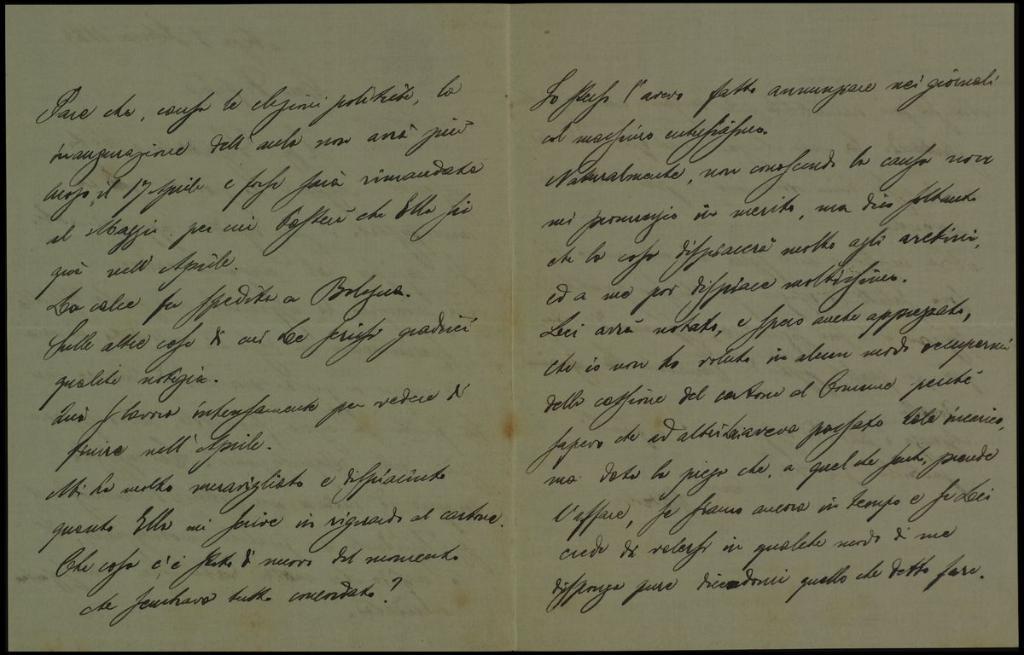 Pare che, causa le elezioni politiche, la
inaugurazione dell'aula non avrà più
luogo il 17 Aprile e forse sarà rimandata
al Maggio per cui basterà che Ella sia
quà nell'Aprile.
La calce fu spedita a Bologna.
Sulle altre cose di cui Le scrissi gradirei
qualche notizia.
Quà si lavora intensamente per vedere di
finire nell'Aprile.
Mi ha molto meravigliato e dispiaciuto
quanto Ella mi scrive in riguardo al cartone.
Che cosa c'è stato di nuovo dal momento
che sembrava tutto concordato?
Io stesso l'avevo fatto annunziare nei giornali
col massimo entusiasmo.
Naturalmente, non conoscendo la causa non
mi pronunzio in merito, ma dico soltanto
che la cosa dispiacerà molto agli aretini,
ed a me poi dispiace moltissimo.
Lei avrà notato, e spero anche apprezzato,
che io non ho voluto in alcun modo occuparmi
della cessione del cartone al Comune perché
sapevo che ad altri aveva passato tale incarico,
ma data la piega che, a quel che pare, prende
l'affare, se siamo ancora in tempo e se Lei
crede di valersi in qualche modo di me
disponga pure dicendomi quello che debbo fare.